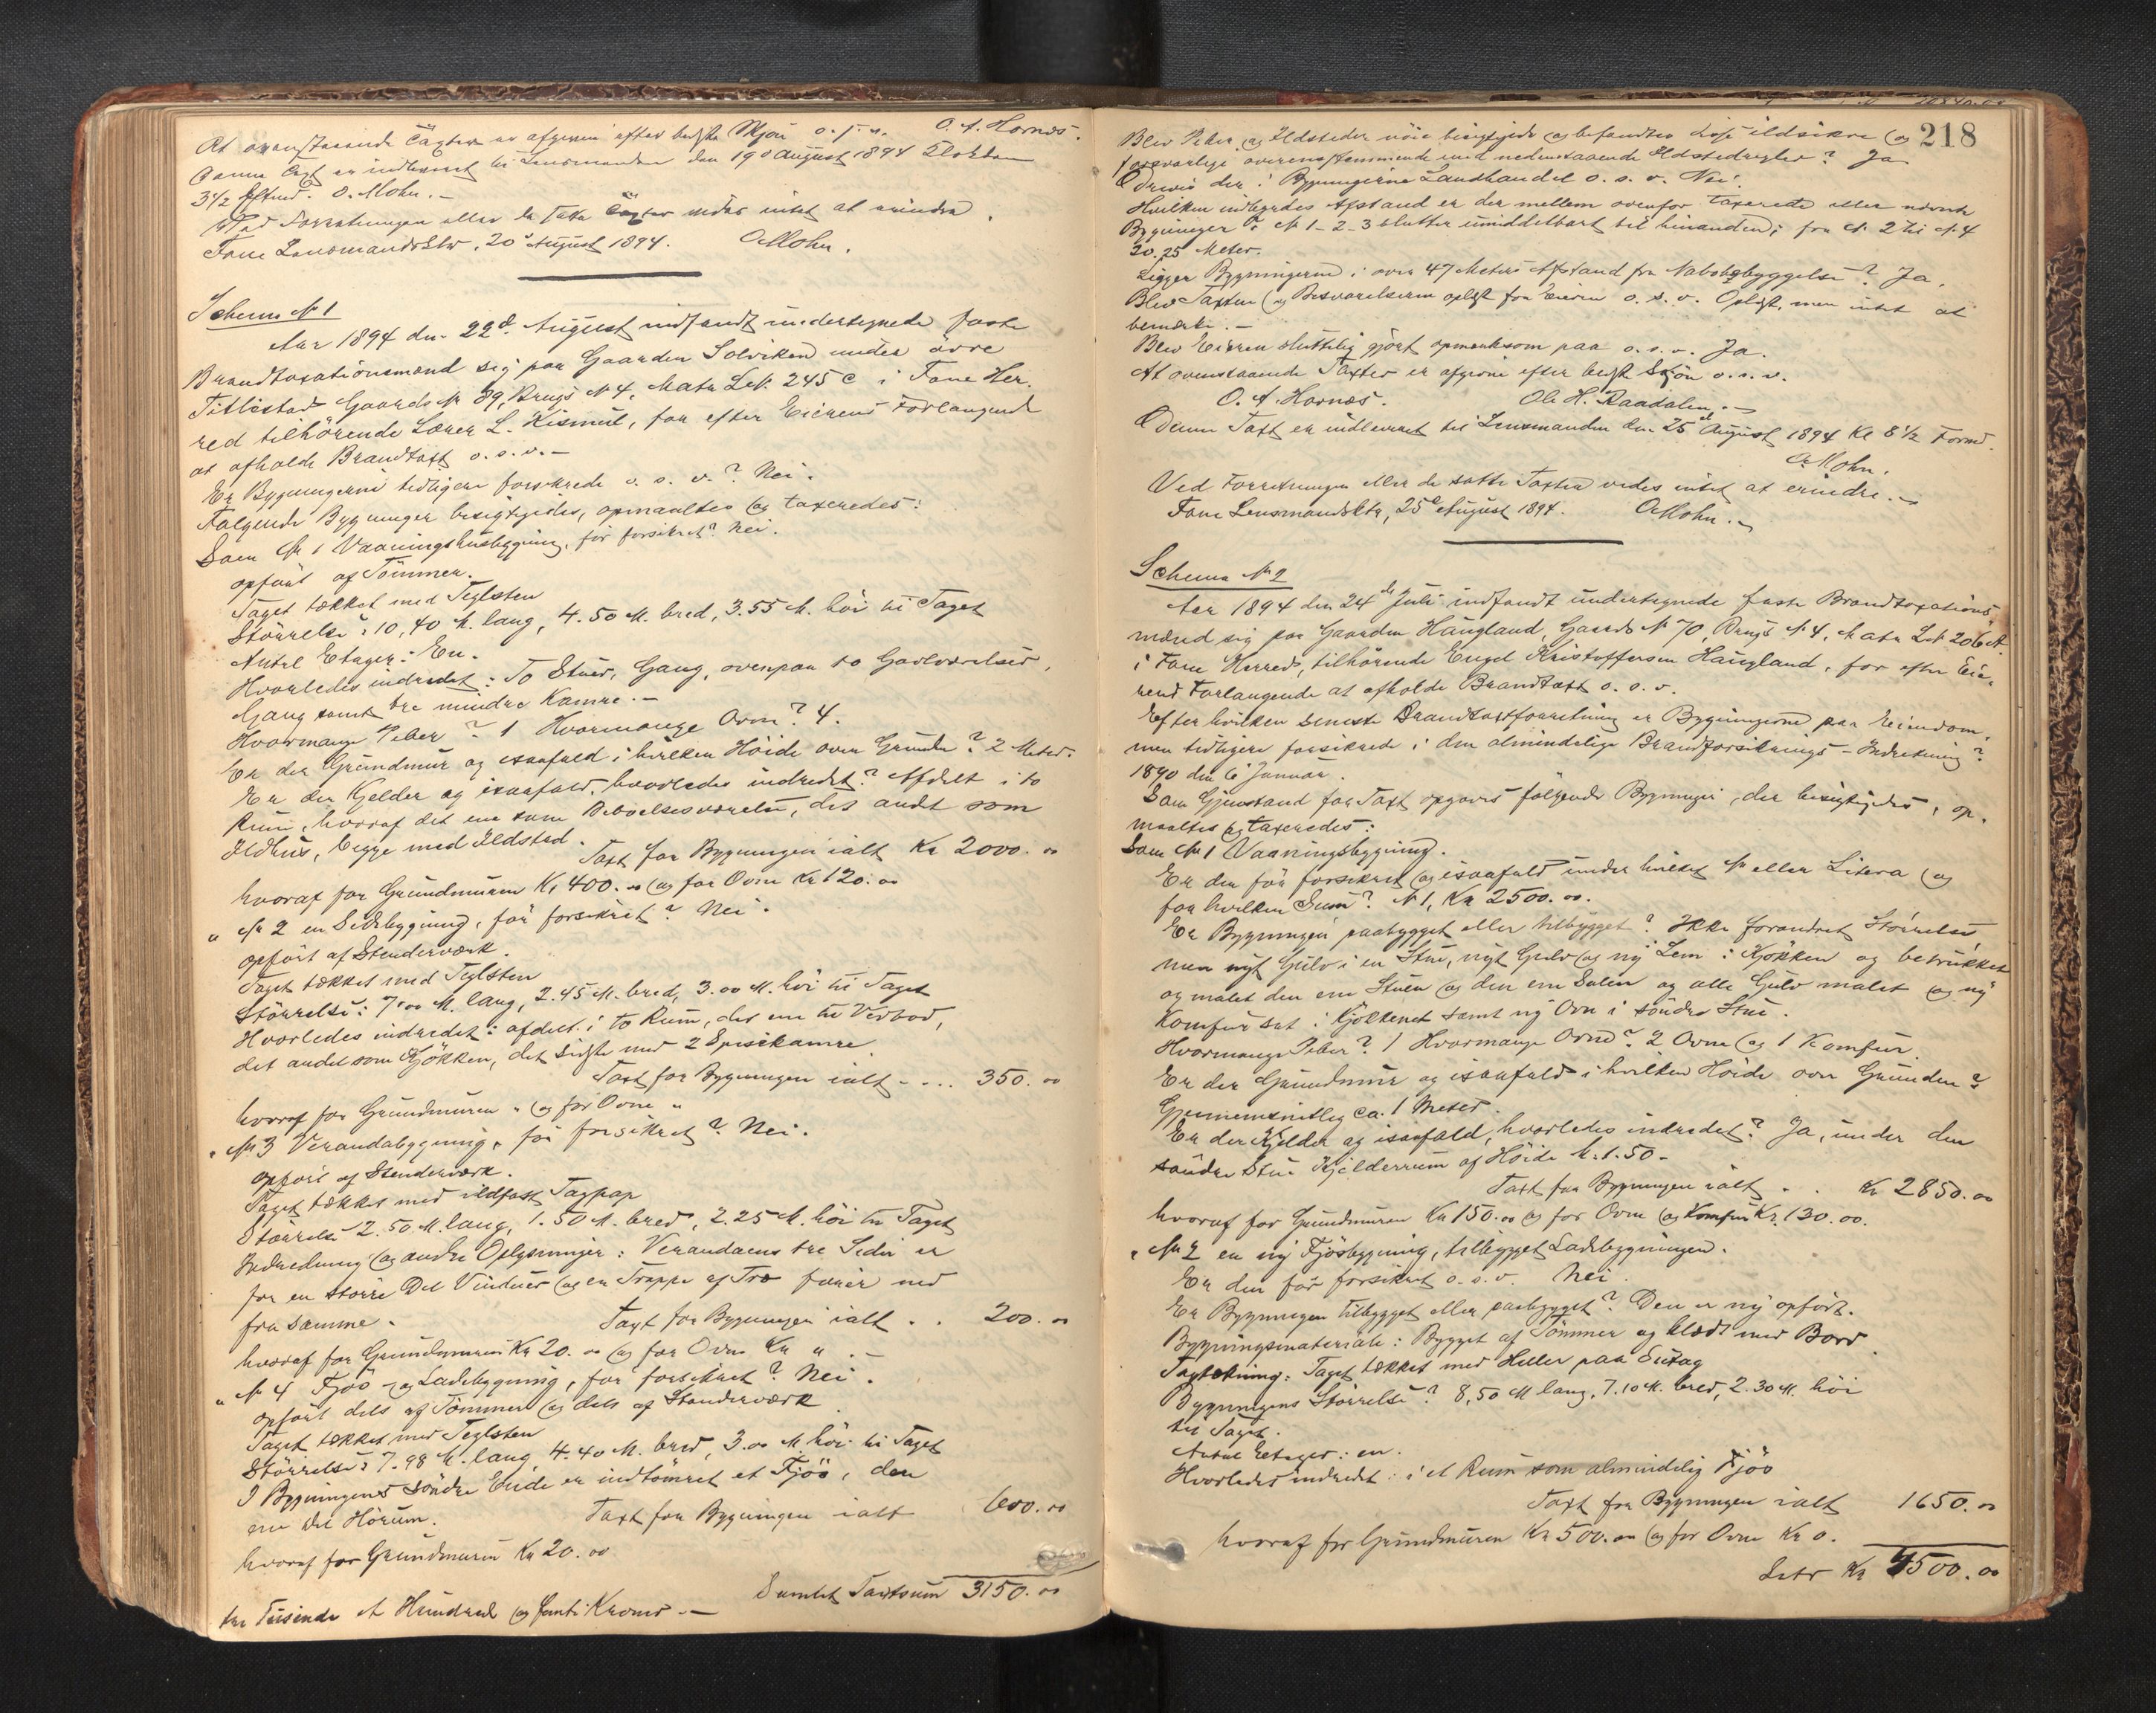 At ovenstaaende Taxter er afgivne efter bedste Skjøn o. s. v. O. A. Hornæs.
Denne Taxt er indleveret til Lensmanden den 19de August 1894 Klokken
3½ Eftmd. O. Mohn. –
Ved Forretningen eller de satte Taxter vides intet at erindre.
Fane Lensmandsktr, 20de August 1894. O Mohn.
Schema № 1
Aar 1894 den 22d. August indfandt undertegnede faste
Brandtaxationsmænd sig paa Gaarden Solviken under øvre
Titlestad Gaards № 39, Brugs № 4, Matr. L№ 245 c i Fane Her-
red tilhørende Lærer L. Kismul, for efter Eierens Forlangende
at afholde Brandtaxt o. s. v. –
Er Bygningerne tidligere forsikrede o. s. v.? Nei.
Følgende Bygninger besigtigedes, opmaaltes og taxeredes:
Som № 1 Vaaningshusbygning, før forsikret? Nei.
opført af Tømmer.
Taget tækket med Teglsten
Størrelse: 10,40 M. lang, 4.50 M. bred, 3.55 M. høi til Taget
Antal Etager: En.
Hvorledes indredet: To Stuer, Gang, ovenpaa to Gavlværelser,
Gang samt tre mindre Kamre. –
Hvormange Piber? 1 Hvormange Ovne? 4.
Er der Grundmur og isaafald i hvilken Høide over Grunden? 2 Meter.
Er der Kjelder og isaafald, hvorledes indredet? Afdelt i to
Rum, hvoraf det ene som Beboelsesværelse, det andet som
Ildhus, begge med Ildsted.
Taxt for Bygningen ialt Kr 2000.00
hvoraf for Grundmuren Kr 400.00 og for Ovne Kr 120.00
" № 2 en Sidebygning, før forsikret? Nei.
opført af Stenderværk.
Taget tækket med Teglsten
Størrelse: 7.00 M. lang, 2.45 M. bred, 3.00 M. høi til Taget
Hvorledes indredet: afdelt i to Rum, det ene til Vedbod,
det andet som Kjøkken, det sidste med 2 Spisekamre.
Taxt for Bygningen ialt - ... 350.00
hvoraf for Grundmuren " og for Ovne "
" № 3 Verandabygning, før forsikret? Nei.
opført af Stenderværk.
Taget tækket med ildfast Tagpap
Størrelse 2.50 M. lang, 1.50 M. bred, 2.25 M. høi til Taget
Indredning og andre Oplysninger: Verandaens tre Sider er
for en større Del Vinduer og en Trappe af Træ fører ned
fra samme. Taxt for Bygningen ialt . . 200.00
hvoraf for Grundmuren Kr 20.00 og for Ovne Kr " . –
" № 4 Fjøs- og Ladebygning, før forsikret? Nei.
opført dels af Tømmer og dels af Stenderværk.
Taget tækket med Teglsten
Størrelse: 7.98 M. lang, 4.40 M. bred, 3.00 M høi til Taget
I Bygningens søndre Ende er indtømret et Fjøs, den
øvre Del Hørum. Taxt for Bygningen ialt 600.00
hvoraf for Grundmuren Kr 20.00
Samlet Taxtsum 3150.00
tre Tusinde et Hundred og femti Kroner. –
218
Blev Piber og Ildsteder nøie besigtigede og befandtes disse ildsikre og
forsvarlige overensstemmende med nedenstaaende Ildstedregler? Ja
Drives der i Bygningerne Landhandel o. s. v. Nei.
Hvilken indbyrdes Afstand er der mellem ovenfor taxerede eller nævnte
Bygninger? № 1-2-3 slutter umiddelbart til hinanden; fra № 2 til № 4
20.25 Meter.
Ligger Bygningerne i over 47 Meters Afstand fra Nabobebyggelse? Ja.
Blev Taxten og Besvarelserne oplæst for Eieren o. s. v. Oplæst, men intet at
bemærke. –
Blev Eieren sluttelig gjort opmærksom paa o. s. v. Ja.
At ovenstaaende Taxter er afgivne efter bedste Skjøn o. s. v.
O. A. Hornæs. Ole H. Raadalen. –
Denne Taxt er indleveret til Lensmanden den 25de August 1894 Kl 8½ Formd.
O Mohn.
Ved Forretningen eller de satte Taxter vides intet at erindre. –
Fane Lensmandsktr, 25de August 1894. O Mohn. –
Schema № 2
Aar 1894 den 24de Juli indfandt undertegnede faste Brandtaxations-
mænd sig paa Gaarden Haugland, Gaards № 70, Brugs № 4, Matr L№ 206 A
i Fane Herred, tilhørende Engel Kristoffersen Haugland, for efter Eie-
rens Forlangende at afholde Brandtaxt o. s. v.
Efter hvilken seneste Brandtaxtforretning er Bygningerne paa Eiendom-
men tidligere forsikrede i den almindelige Brandforsikrings-Indretning?
1890 den 6te Januar.
Som Gjenstand for Taxt opgaves følgende Bygninger, der besigtigedes, op-
maaltes og taxeredes:
Som № 1 Vaaningsbygning.
Er den før forsikret og isaafald under hvilket № eller Litera og
for hvilken Sum? № 1, Kr 2500.00.
Er Bygningen paabygget eller tilbygget? Ikke forandret Størrelse,
men nyt Gulv i en Stue, nyt Gulv og ny Lem i Kjøkken og betrukket
og malet den ene Stuen og den ene Salen og alle Gulv malet og ny
Komfur sat i Kjøkkenet samt ny Ovn i søndre Stue.
Hvormange Piber? 1 Hvormange Ovne? 2 Ovne og 1 Komfur.
Er der Grundmur og isaafald i hvilken Høide over Grunden?
Gjennemsnitlig ca. 1 Meter.
Er der Kjelder og isaafald, hvorledes indredet? Ja, under den
søndre Stue Kjelderrum af Høide M. 1.50 –
Taxt for Bygningen ialt . . Kr 2850.00
hvoraf for Grundmuren Kr 150.00 og for Ovne og Komfur Kr. 130.00.
" № 2 en ny Fjøsbygning, tilbygget Ladebygningen.
Er den før forsikret o. s. v. Nei.
Er Bygningen tilbygget eller paabygget? Den er ny opført.
Bygningsmateriale: Bygget af Tømmer og klædt med Bord.
Tagtækning: Taget tækket med Heller paa Sutag
Bygningens Størrelse? 8,50 M lang, 7.10 M. bred, 2.30 M. høi
til Taget.
Antal Etager: en.
Hvorledes indredet: i et Rum som almindelig Fjøs
Taxt for Bygningen ialt 1650.00
hvoraf for Grundmuren Kr 500.00 og for Ovne Kr 0.
Kr 4500.00